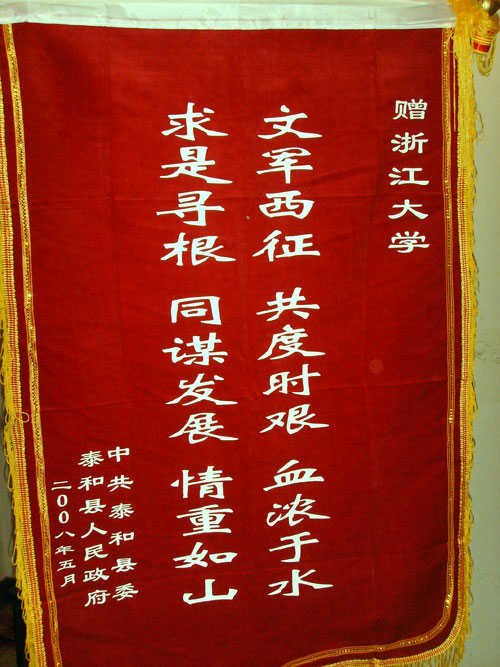 赠浙江大学
文军西征 共度时艰 血浓于水
求是寻根 同谋发展 情重如山
中共泰和县委
泰和县人民政府
二00八年五月